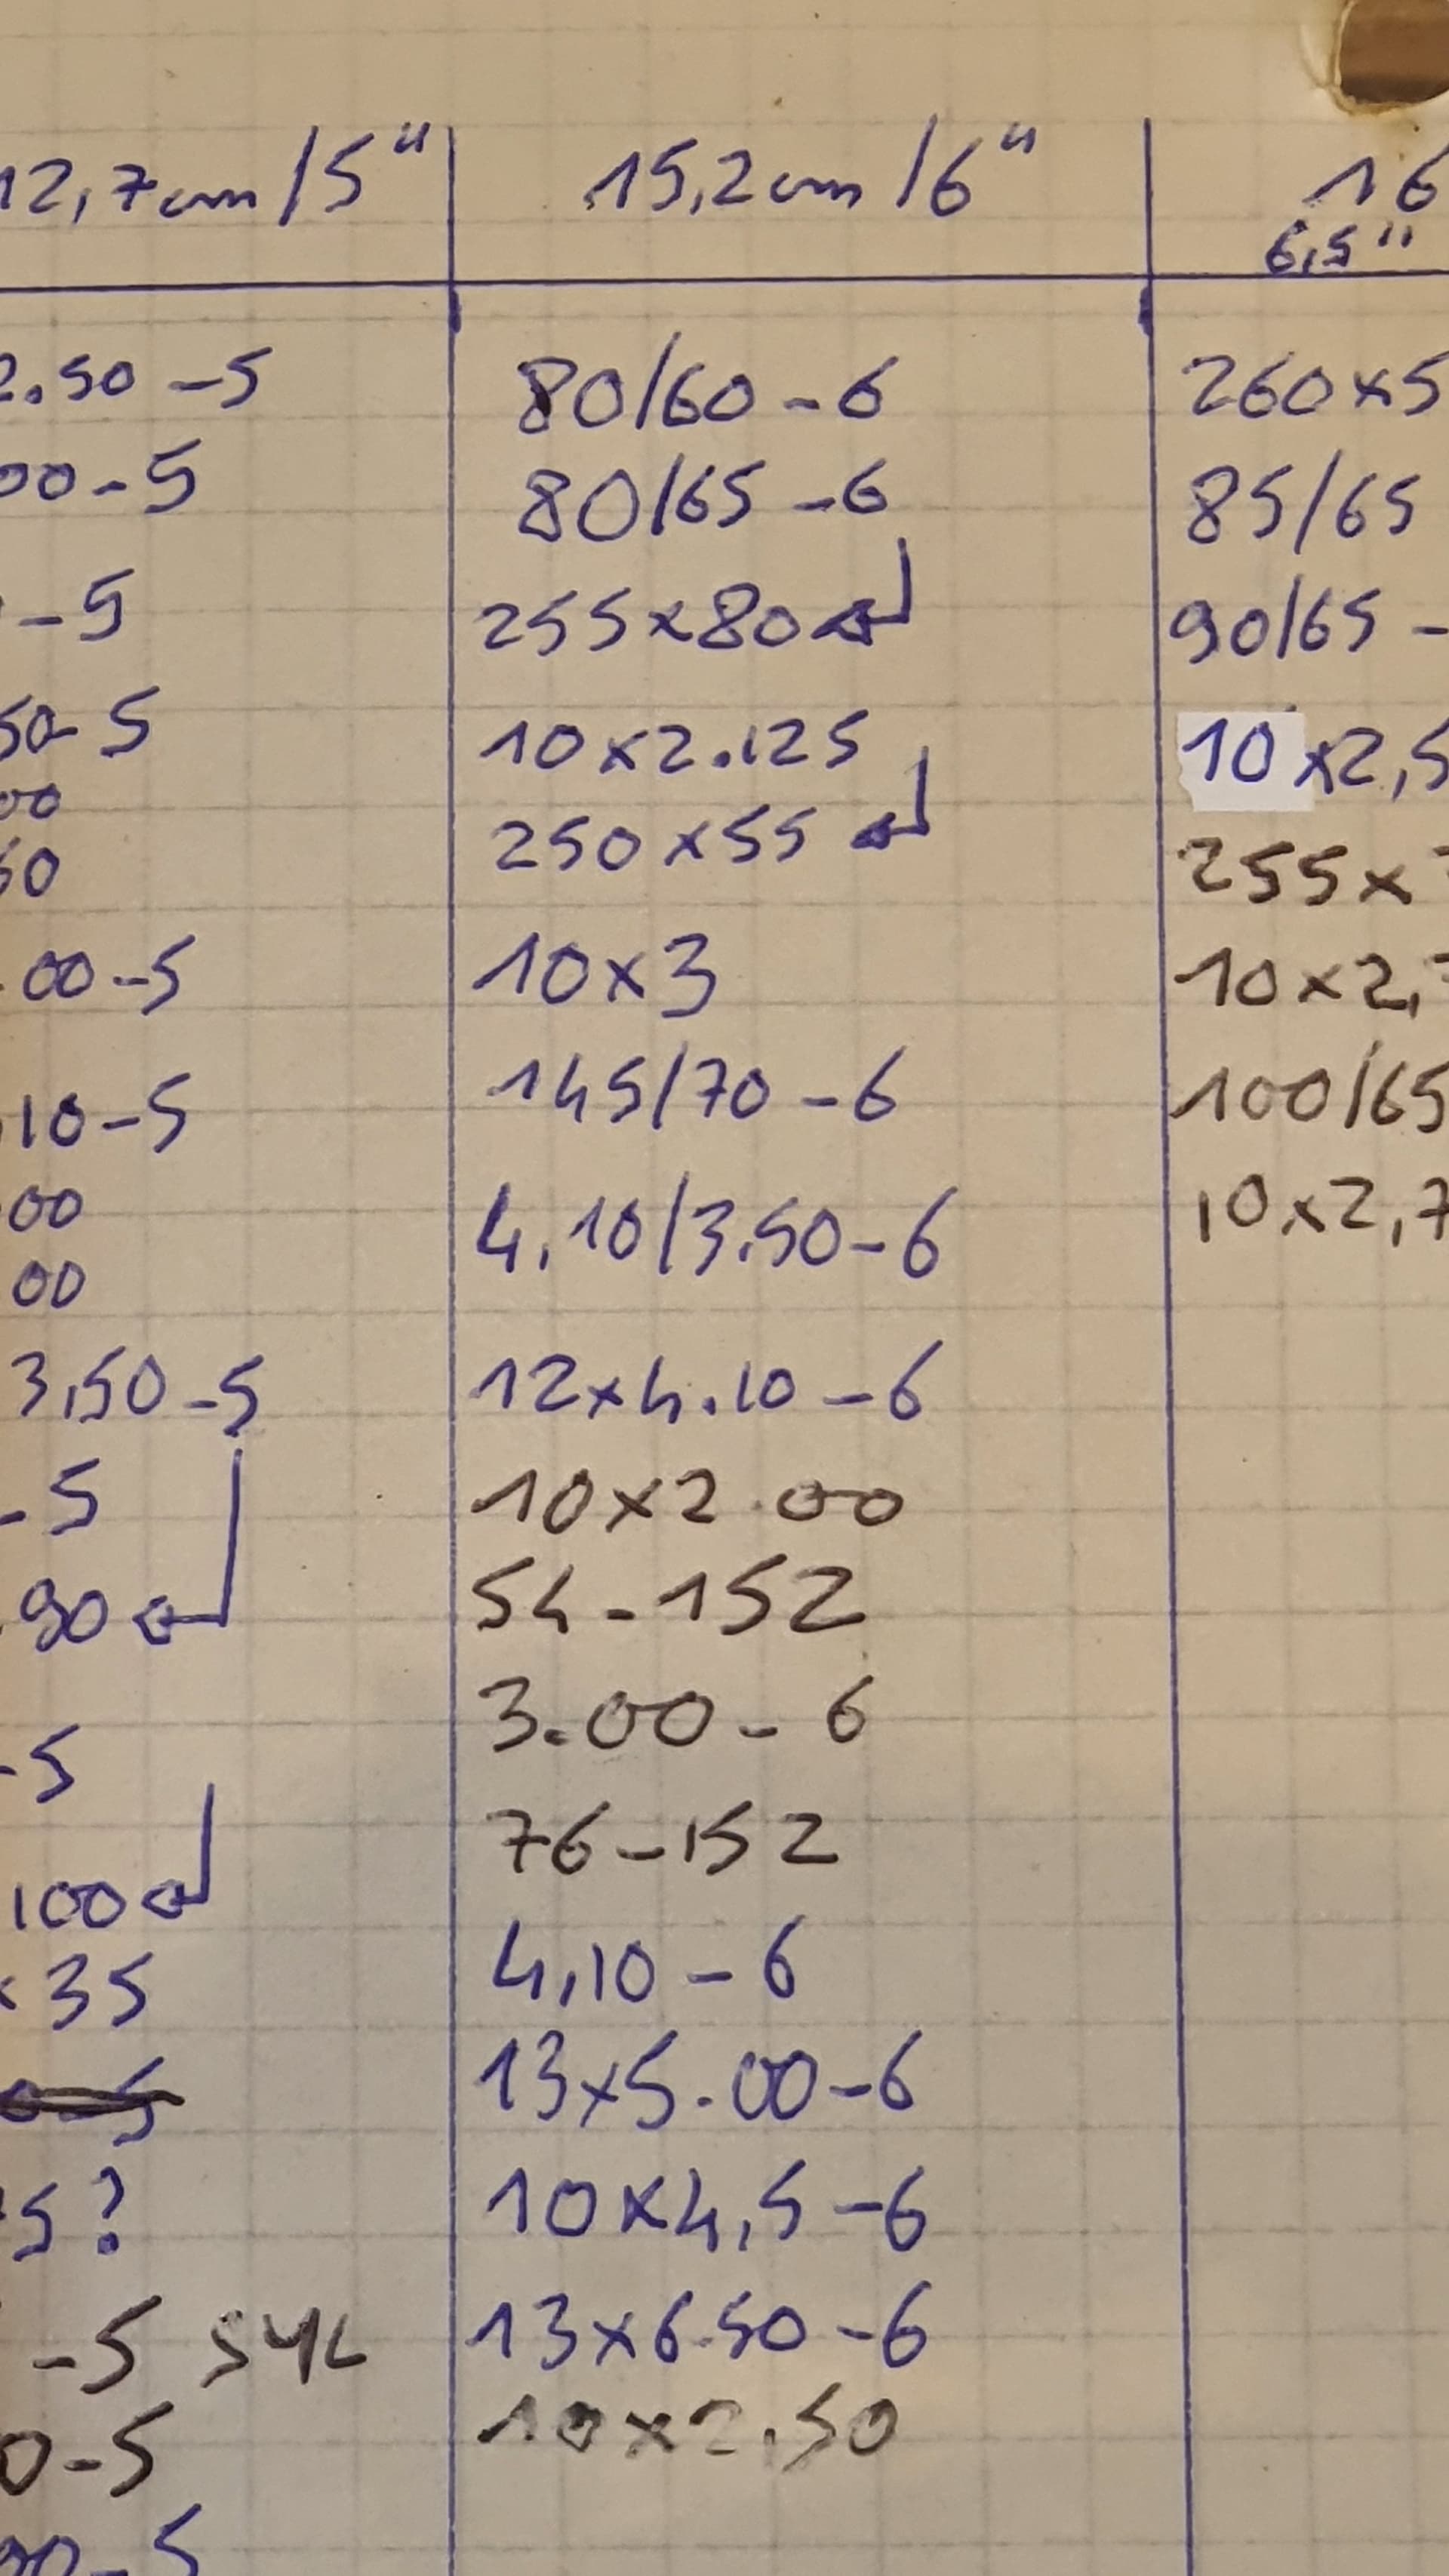 12,7cm/5"
2.50-5
00-5
-5
50-5
00
50
00-5
10-5
00
00
3,50-5
-5
90
-5
100
x35
5?
-5 SYL
0-5
00-5
15,2cm/6"
80/60-6
80/65-6
255x80
10x2.125
250x55
10x3
145/70-6
4,10/3.50-6
12x4.10-6
10x2.00
54-152
3.00-6
76-152
4,10-6
13x5.00-6
10x4,5-6
13x6.50-6
10x2.50
16
6,5"
260x5
85/65
90/65-
10x2,5
255x
10x2,
100/65
10x2,7